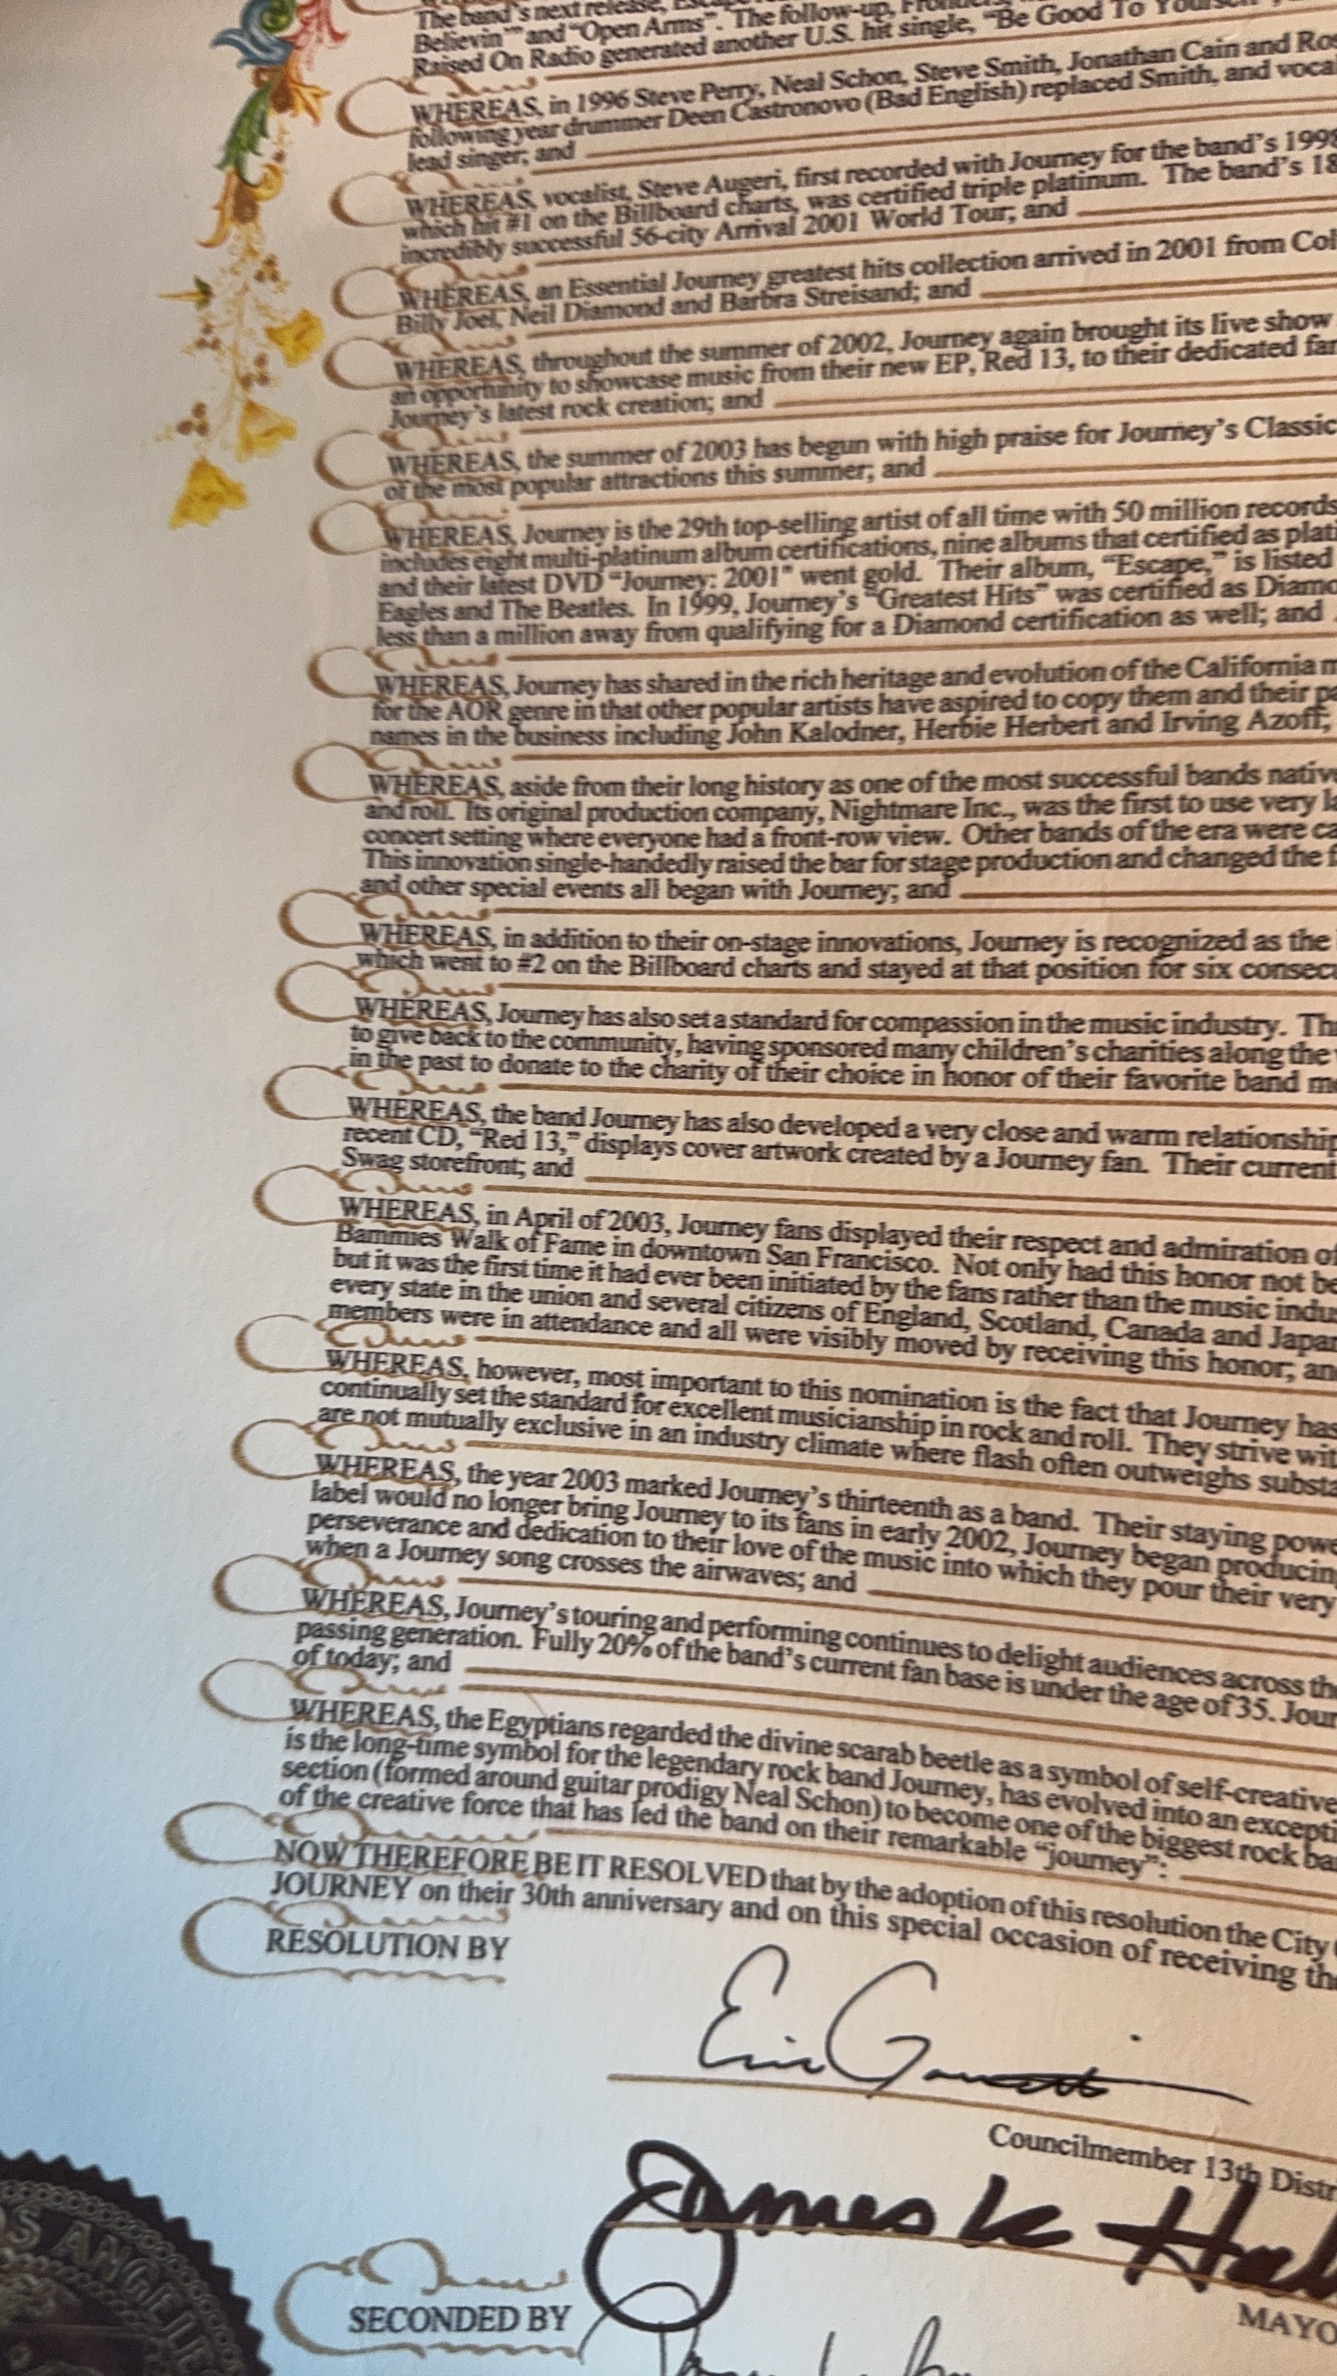 The band's next release,
Believin'" and "Open Arms". The follow-up,
Raised On Radio generated another U.S. hit single, "Be Good To
WHEREAS, in 1996 Steve Perry, Neal Schon, Steve Smith, Jonathan Cain and
following year drummer Deen Castronovo (Bad English) replaced Smith, and
lead singer; and
WHEREAS, vocalist, Steve Augeri, first recorded with Journey for the band's 1998
which hit #1 on the Billboard charts, was certified triple platinum. The band's
incredibly successful 56-city Arrival 2001 World Tour; and
WHEREAS, an Essential Journey greatest hits collection arrived in 2001 from Col
Billy Joel, Neil Diamond and Barbra Streisand; and
WHEREAS, throughout the summer of 2002, Journey again brought its live show
an opportunity to showcase music from their new EP, Red 13, to their dedicated fan
Journey's latest rock creation; and
WHEREAS, the summer of 2003 has begun with high praise for Journey's Classic
of the most popular attractions this summer; and
WHEREAS, Journey is the 29th top-selling artist of all time with 50 million records
includes eight multi-platinum album certifications, nine albums that certified as plati
and their latest DVD "Journey: 2001" went gold. Their album, "Escape," is listed
Eagles and The Beatles. In 1999, Journey's "Greatest Hits" was certified as Diamo
less than a million away from qualifying for a Diamond certification as well; and
WHEREAS, Journey has shared in the rich heritage and evolution of the California m
for the AOR genre in that other popular artists have aspired to copy them and their pa
names in the business including John Kalodner, Herbie Herbert and Irving Azoff;
WHEREAS, aside from their long history as one of the most successful bands native
and roll. Its original production company, Nightmare Inc., was the first to use very la
concert setting where everyone had a front-row view. Other bands of the era were ca
This innovation single-handedly raised the bar for stage production and changed the f
and other special events all began with Journey; and
WHEREAS, in addition to their on-stage innovations, Journey is recognized as the
which went to #2 on the Billboard charts and stayed at that position for six consec
WHEREAS, Journey has also set a standard for compassion in the music industry. Th
to give back to the community, having sponsored many children's charities along the
in the past to donate to the charity of their choice in honor of their favorite band me
WHEREAS, the band Journey has also developed a very close and warm relationship
recent CD, "Red 13," displays cover artwork created by a Journey fan. Their current
Swag storefront; and
WHEREAS, in April of 2003, Journey fans displayed their respect and admiration of
Bammies Walk of Fame in downtown San Francisco. Not only had this honor not be
but it was the first time it had ever been initiated by the fans rather than the music indu
every state in the union and several citizens of England, Scotland, Canada and Japan
members were in attendance and all were visibly moved by receiving this honor; an
WHEREAS, however, most important to this nomination is the fact that Journey has
continually set the standard for excellent musicianship in rock and roll. They strive wit
are not mutually exclusive in an industry climate where flash often outweighs substa
WHEREAS, the year 2003 marked Journey's thirteenth as a band. Their staying powe
label would no longer bring Journey to its fans in early 2002, Journey began producing
perseverance and dedication to their love of the music into which they pour their very
when a Journey song crosses the airwaves; and
WHEREAS, Journey's touring and performing continues to delight audiences across the
passing generation. Fully 20% of the band's current fan base is under the age of 35. Jour
of today; and
WHEREAS, the Egyptians regarded the divine scarab beetle as a symbol of self-creative
is the long-time symbol for the legendary rock band Journey, has evolved into an excepti
section (formed around guitar prodigy Neal Schon) to become one of the biggest rock ba
of the creative force that has led the band on their remarkable "journey":
NOW THEREFORE BE IT RESOLVED that by the adoption of this resolution the City
JOURNEY on their 30th anniversary and on this special occasion of receiving the
RESOLUTION BY
Eric Garcetti
Councilmember 13th Distr
James K Hah
MAYO
SECONDED BY
OS ANGELE